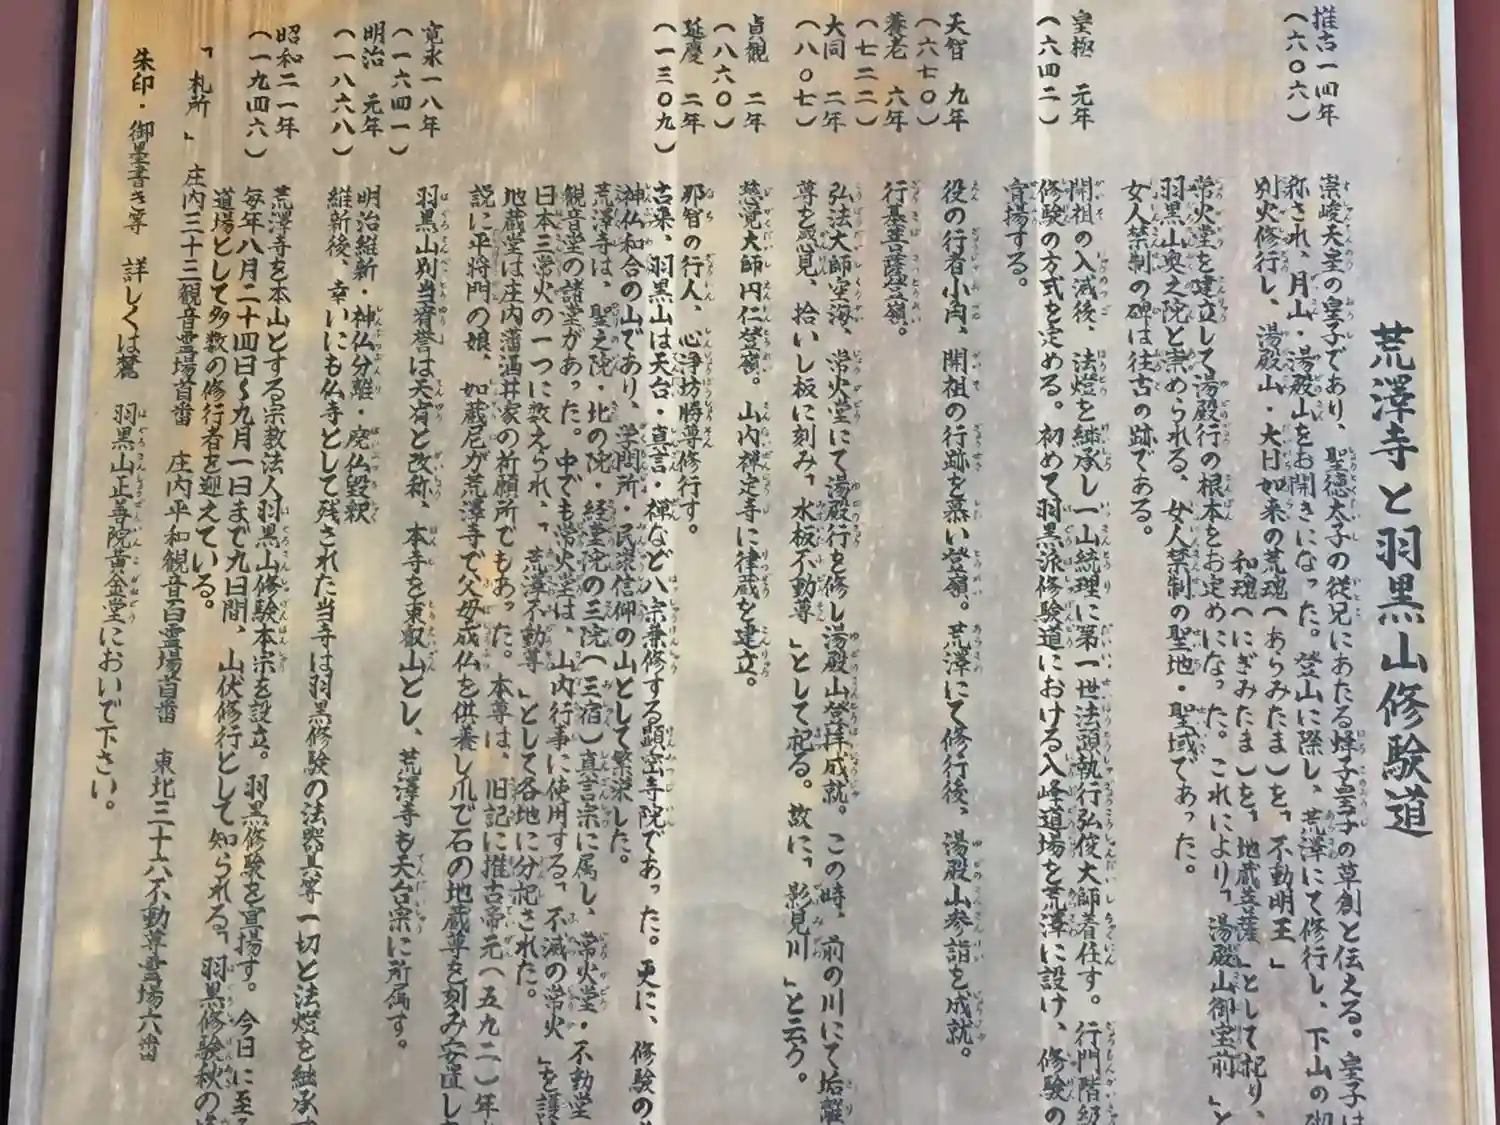 荒澤寺と羽黒山修験道
推古一四年
(六〇六)
崇峻天皇の皇子であり、聖徳太子の従兄にあたる蜂子皇子の草創と伝える。皇子は
称され、月山・湯殿山をお開きになった。登山に際し、荒澤にて修行し、下山の砌
別火修行し、湯殿山・大日如来の荒魂(あらみたま)を、「不動明王」
和魂(にぎみたま)を、「地蔵菩薩」として祀り、
常火堂を建立して湯殿行の根本をお定めになった。これにより「湯殿山御宝前」と
羽黒山奥之院と崇められる、女人禁制の聖地・聖域であった。
女人禁制の碑は往古の跡である。
皇極 元年
(六四二)
開祖の入滅後、法燈を継承し一山統理に第一世法頭執行弘俊大師着任す。行門階級
修験の方式を定める。初めて羽黒派修験道における入峰道場を荒澤に設け、修験の
宣揚する。
天智 九年
(六七〇)
役の行者小角、開祖の行跡を慕い登嶺。荒澤にて修行後、湯殿山参詣を成就。
養老 六年
(七二二)
行基菩薩登嶺。
大同 二年
(八〇七)
弘法大師空海、常火堂にて湯殿行を修し湯殿山登拝成就。この時、前の川にて垢離
尊を感見、拾いし板に刻み「水板不動尊」として祀る。故に「影見川」と云う。
貞観 二年
(八六〇)
慈覚大師円仁登嶺。山内禅定寺に律蔵を建立。
延慶 二年
(一三〇九)
那智の行人、心浄坊勝尊修行す。
古来、羽黒山は天台・真言・禅など八宗兼修する顕密寺院であった。更に、修験の
神仏和合の山であり、学問所・民衆信仰の山として繁栄した。
荒澤寺は、聖之院・北の院・経堂院の三院(三宿)真言宗に属し、常火堂・不動堂
観音堂の諸堂があった。中でも常火堂は、山内行事に使用する「不滅の常火」を護
日本三常火の一つに数えられ、「荒澤不動尊」として各地に分祀された。
地蔵堂は庄内藩酒井家の祈願所でもあった。本尊は、旧記に推古帝元(五九二)年
説に平将門の娘、如蔵尼が荒澤寺で父母成仏を供養し爪で石の地蔵尊を刻み安置し
寛永一八年
(一六四一)
羽黒山別当宥誉は天宥と改称、本寺を東叡山とし、荒澤寺も天台宗に所属す。
明治 元年
(一八六八)
明治維新・神仏分離・廃仏毀釈
維新後、幸いにも仏寺として残された当寺は羽黒修験の法器具等一切と法燈を継承
昭和二一年
(一九四六)
荒澤寺を本山とする宗教法人羽黒山修験本宗を設立。羽黒修験を宣揚す。今日に至
毎年八月二十四日〜九月一日まで九日間、山伏修行として知られる「羽黒修験秋の
道場として多数の修行者を迎えている。
「札所」 庄内三十三観音霊場首番 庄内平和観音百霊場首番 東北三十六不動尊霊場六番
朱印・御墨書き等 詳しくは麓 羽黒山正善院黄金堂においで下さい。